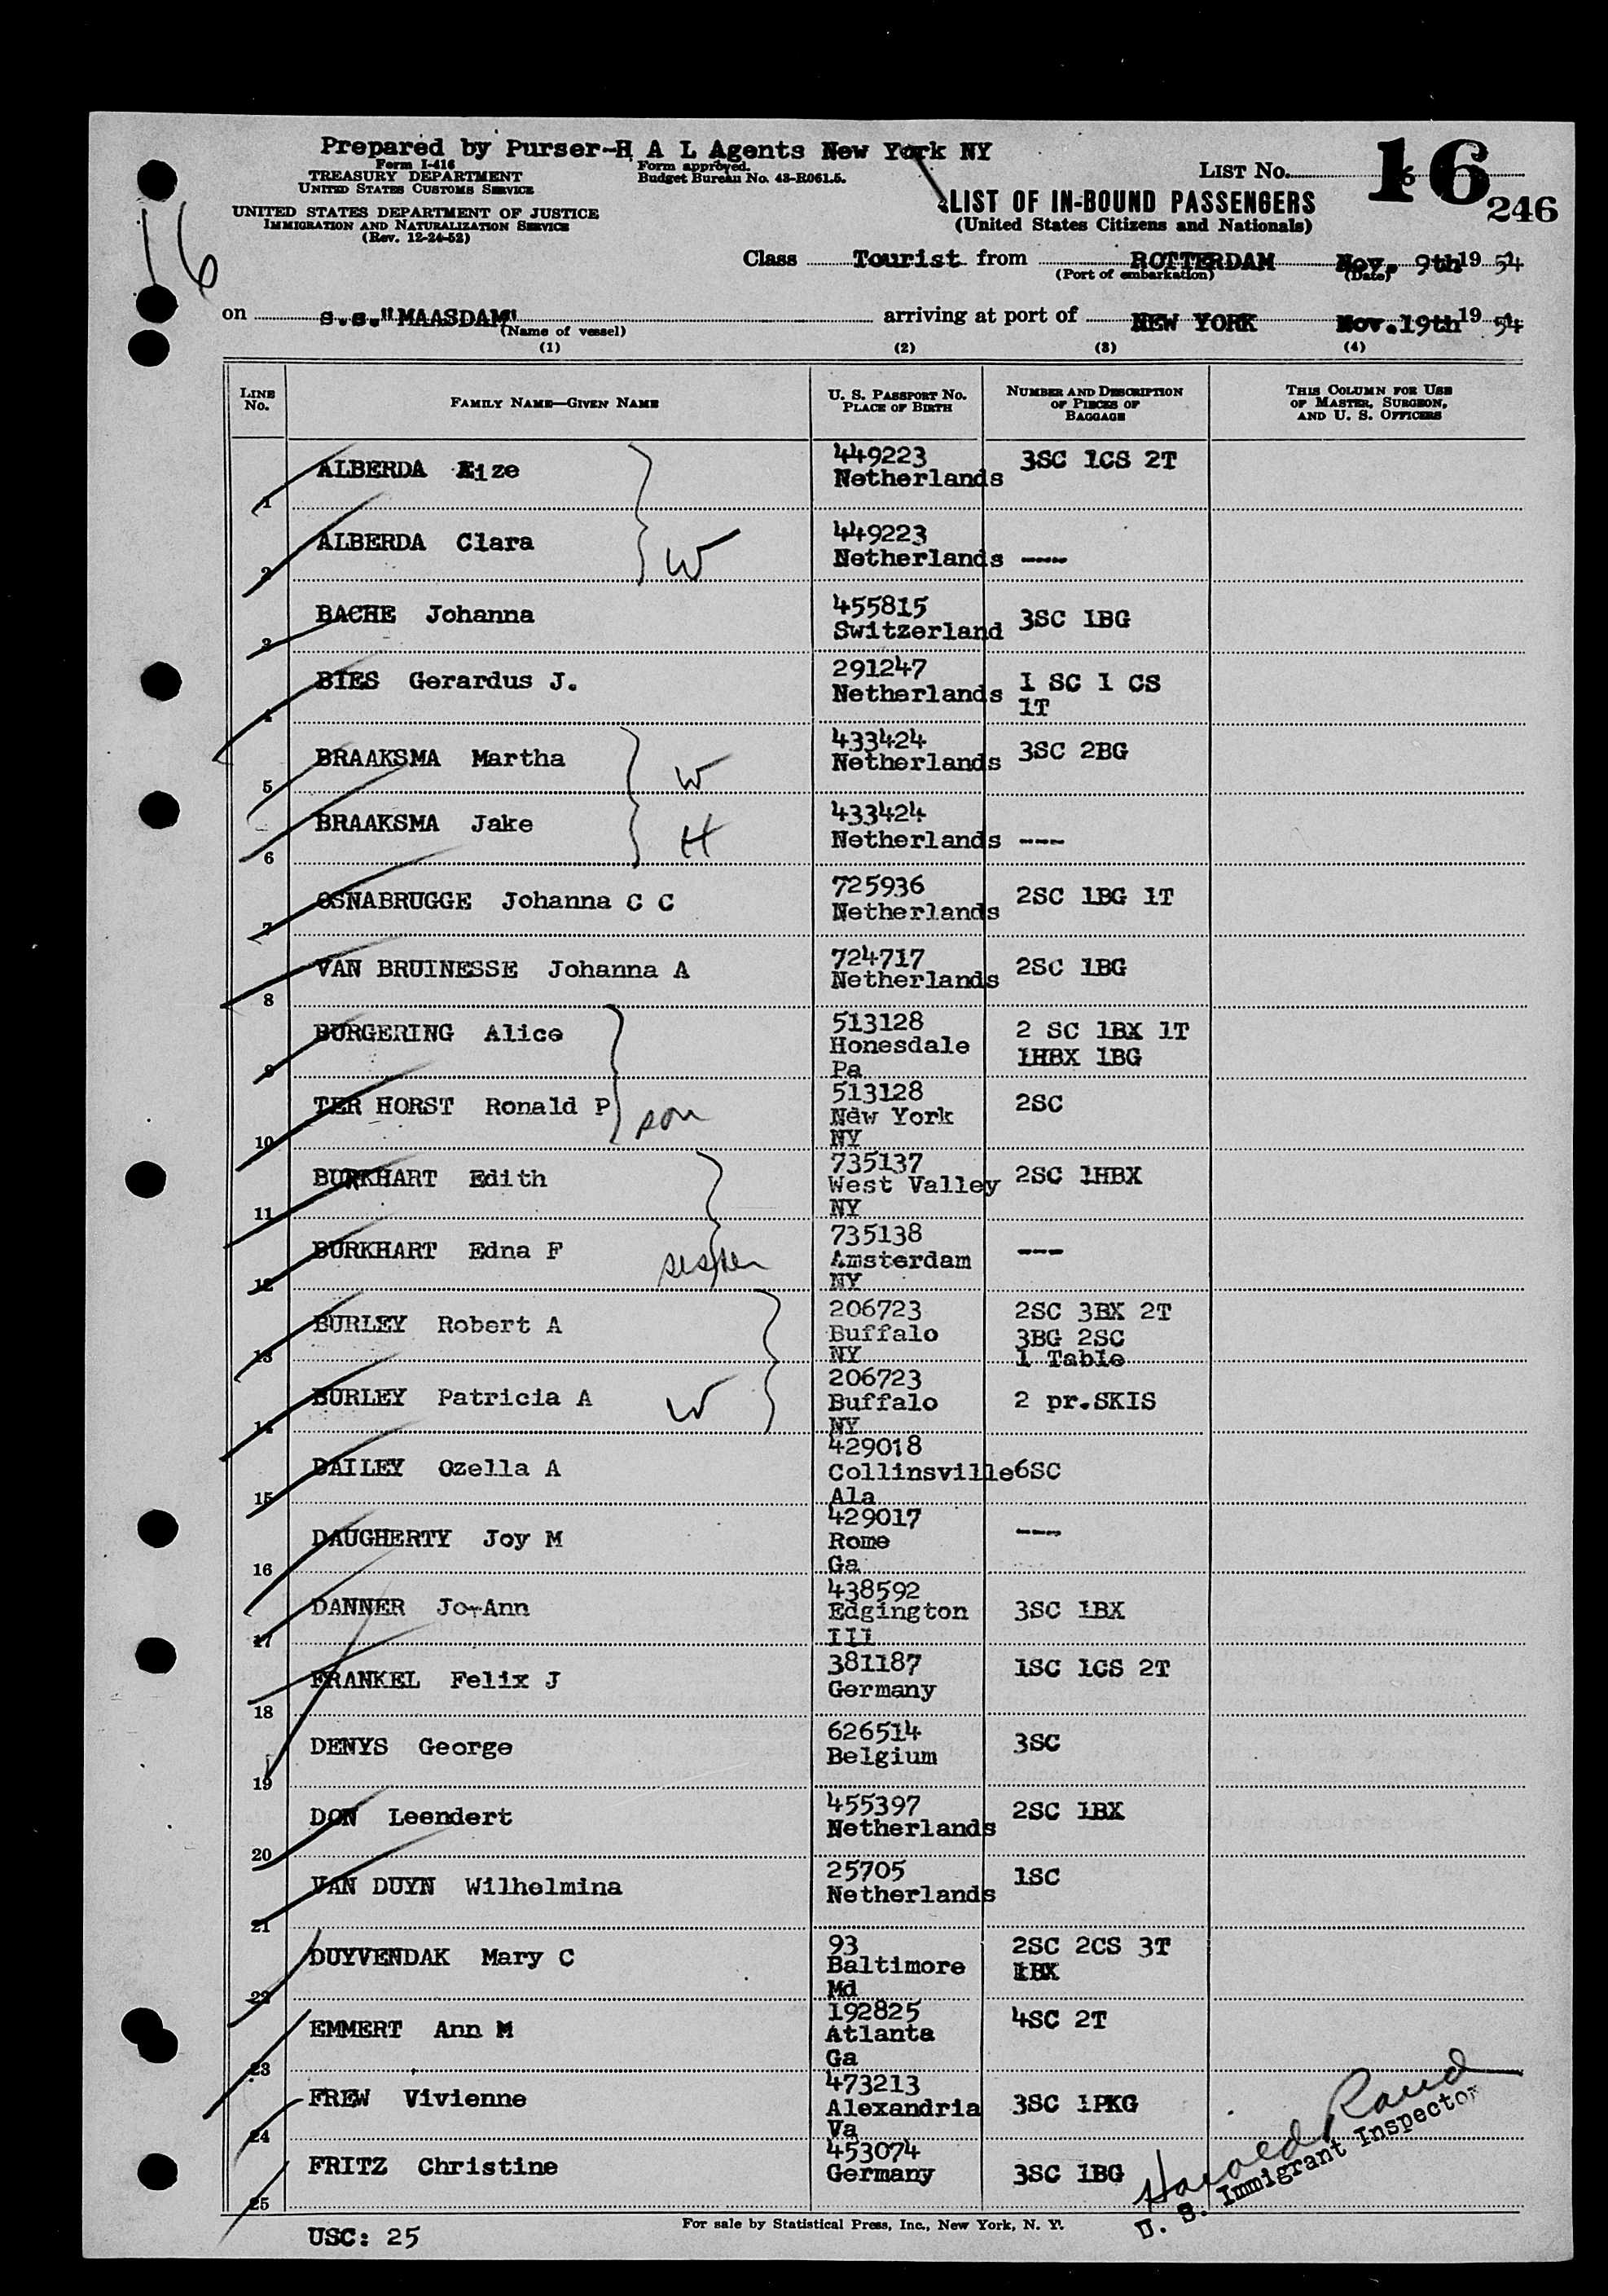 Prepared by Purser-H A L Agents New York NY
Form I-416
TREASURY DEPARTMENT
UNITED STATES CUSTOMS SERVICE
Form approved.
Budget Bureau No. 43-R061.5.
LIST No. 16
16
246
UNITED STATES DEPARTMENT OF JUSTICE
IMMIGRATION AND NATURALIZATION SERVICE
(Rev. 12-24-52)
16
LIST OF IN-BOUND PASSENGERS
(United States Citizens and Nationals)
Class Tourist from ROTTERDAM Nov. 9th 19 54
(Port of embarkation) (Date)
on s.s."MAASDAM" arriving at port of NEW YORK Nov.19th 19 54
(Name of vessel)
(1) (2) (3) (4)
LINE No. FAMILY NAME—GIVEN NAME U. S. PASSPORT No. PLACE OF BIRTH NUMBER AND DESCRIPTION OF PIECES OF BAGGAGE THIS COLUMN FOR USE OF MASTER, SURGEON, AND U. S. OFFICERS
1 ALBERDA Eize 449223 Netherlands 3SC 1CS 2T
2 ALBERDA Clara W 449223 Netherlands ----
3 BACHE Johanna 455815 Switzerland 3SC 1BG
4 BIES Gerardus J. 291247 Netherlands 1 SC 1 CS 1T
5 BRAAKSMA Martha W 433424 Netherlands 3SC 2BG
6 BRAAKSMA Jake H 433424 Netherlands ----
7 OSNABRUGGE Johanna C C 725936 Netherlands 2SC 1BG 1T
8 VAN BRUINESSE Johanna A 724717 Netherlands 2SC 1BG
9 BURGERING Alice 513128 Honesdale Pa 2 SC 1BX 1T 1HBX 1BG
10 TER HORST Ronald P son 513128 New York NY 2SC
11 BURKHART Edith 735137 West Valley NY 2SC 1HBX
12 BURKHART Edna F sister 735138 Amsterdam NY ----
13 BURLEY Robert A 206723 Buffalo NY 2SC 3BX 2T 3BG 2SC 1 Table
14 BURLEY Patricia A W 206723 Buffalo NY 2 pr.SKIS
15 DAILEY Ozella A 429018 Collinsville Ala 6SC
16 DAUGHERTY Joy M 429017 Rome Ga ----
17 DANNER Jo-Ann 438592 Edgington Ill 3SC 1BX
18 FRANKEL Felix J 381187 Germany 1SC 1CS 2T
19 DENYS George 626514 Belgium 3SC
20 DON Leendert 455397 Netherlands 2SC 1BX
21 VAN DUYN Wilhelmina 25705 Netherlands 1SC
22 DUYVENDAK Mary C 93 Baltimore Md 2SC 2CS 3T 1BX
23 EMMERT Ann M 192825 Atlanta Ga 4SC 2T
24 FREW Vivienne 473213 Alexandria Va 3SC 1PKG
25 FRITZ Christine 453074 Germany 3SC 1BG
Harold Rand
U. S. Immigrant Inspector
For sale by Statistical Press, Inc., New York, N. Y.
USC: 25